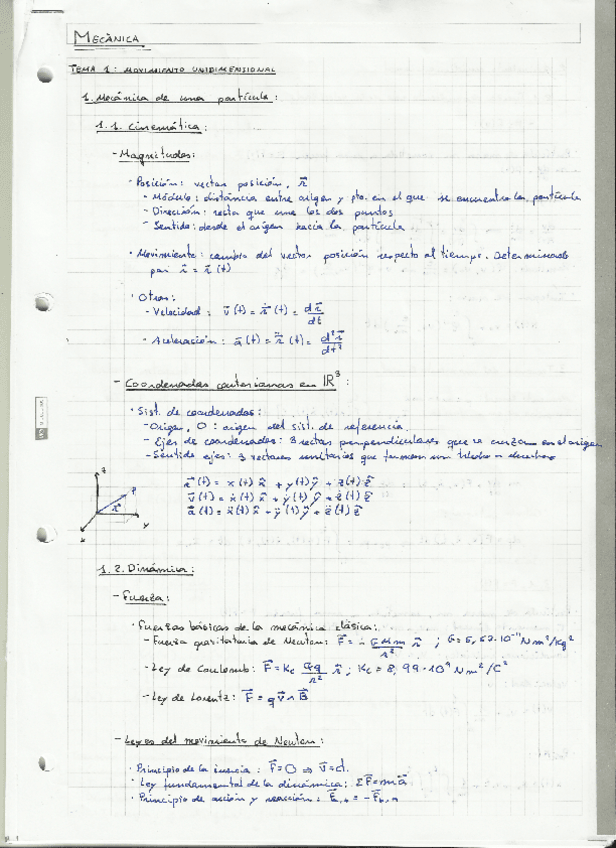 MECÀNICA
TEMA 1: MOVIMIENTO UNIDIMENSIONAL
1. Mecánica de una partícula:
1.1. Cinemática:
- Magnitudes:
· Posición: vector posición, r⃗
- Módulo: distáncia entre origen y pto. en el que se encuentra la partícula
- Dirección: recta que une los dos puntos
- Sentido: desde el origen hacia la partícula
· Movimiento: cambio del vector posición respecto al tiempo. Determinado
por r⃗ = r⃗(t)
· Otras:
- Velocidad: v⃗(t) = ṙ⃗(t) = dr⃗/dt
- Aceleración: a⃗(t) = r̈⃗(t) = d²r⃗/dt²
- Coordenadas cartesianas en ℝ³:
· Sist. de coordenadas:
- Origen, O: origen del sist. de referencia.
- Ejes de coordenadas: 3 rectas perpendiculares que se cruzan en el origen
- Sentido ejes: 3 vectores unitarios que forman un triedro a derechas
r⃗(t) = x(t) x̂ + y(t) ŷ + z(t) ẑ
v⃗(t) = ẋ(t) x̂ + ẏ(t) ŷ + ż(t) ẑ
a⃗(t) = ẍ(t) x̂ + ÿ(t) ŷ + z̈(t) ẑ
z
P
r⃗
y
x
1.2. Dinámica:
- Fuerza:
· Fuerzas básicas de la mecánica clásica:
- Fuerza gravitatoria de Newton: F⃗ = - GMm/r² r̂ ; G = 6,67·10⁻¹¹ Nm²/Kg²
- Ley de Coulomb: F⃗ = Kc Qq/r² r̂ ; Kc = 8,99·10⁹ Nm²/C²
- Ley de Lorentz: F⃗ = q v⃗ ∧ B⃗
- Leyes del movimiento de Newton:
· Principio de la inercia: F⃗ = 0 ⇒ v⃗ = ct.
· Ley fundamental de la dinámica: ΣF⃗ = m a⃗
· Principio de acción y reacción: